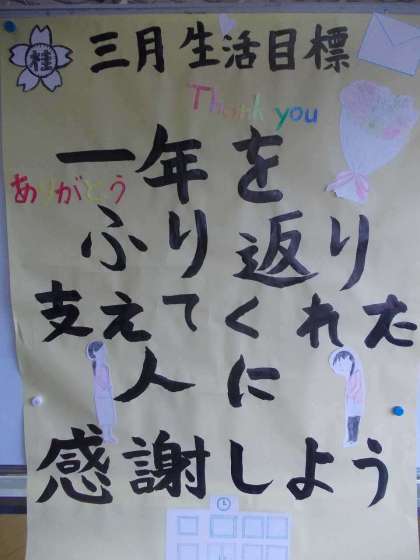 桂
三月生活目標
Thank you
一年を
ありがとう
ふり返り
支えてくれた
人に
感謝しよう